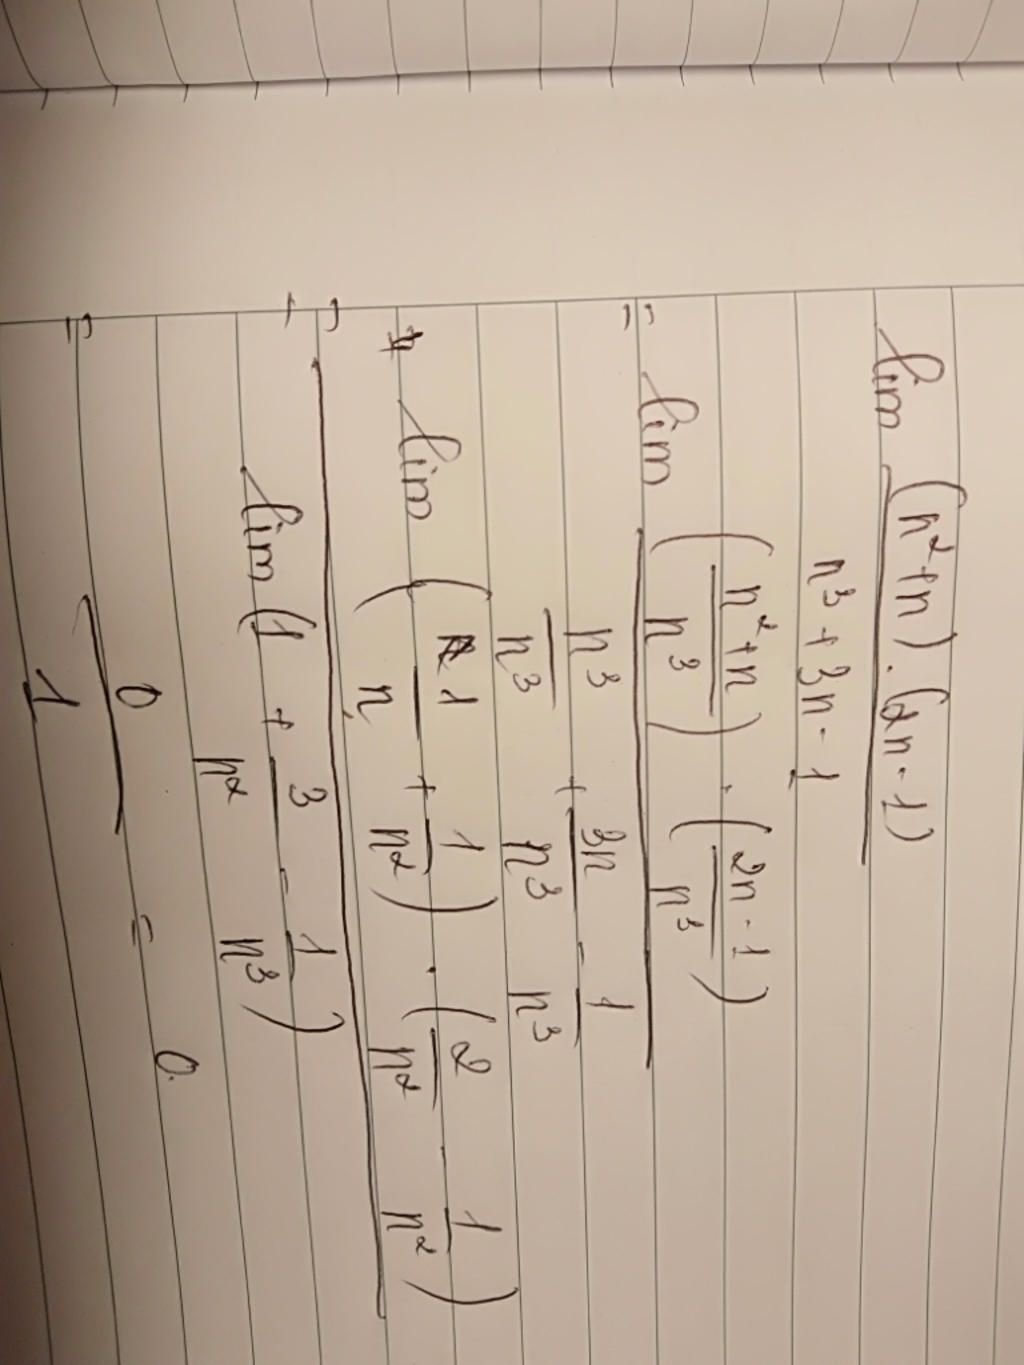 lim (n²+n).(2n-1)
n³+3n-1
= lim (n²+n / n³) . (2n-1 / n³)
n³/n³ + 3n/n³ - 1/n³
= lim (1/n + 1/n²) . (2/n² - 1/n²)
lim (1 + 3/n² - 1/n³)
= 0/1 = 0.